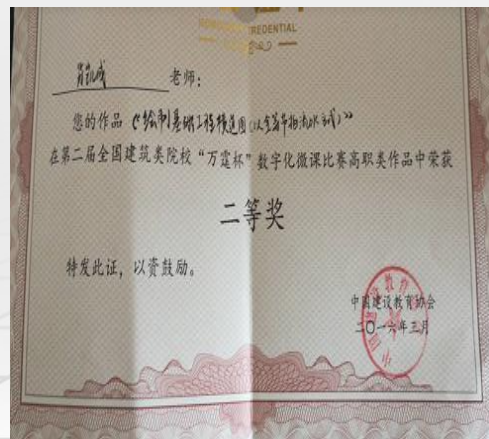 HONORARY CREDENTIAL
肖凯成 老师：
您的作品《绘制基础工程横道图(以全等节拍流水为例)》
在第二届全国建筑类院校“万霆杯”数字化微课比赛高职类作品中荣获
二等奖
特发此证，以资鼓励。
中国建设教育协会
二〇一六年三月